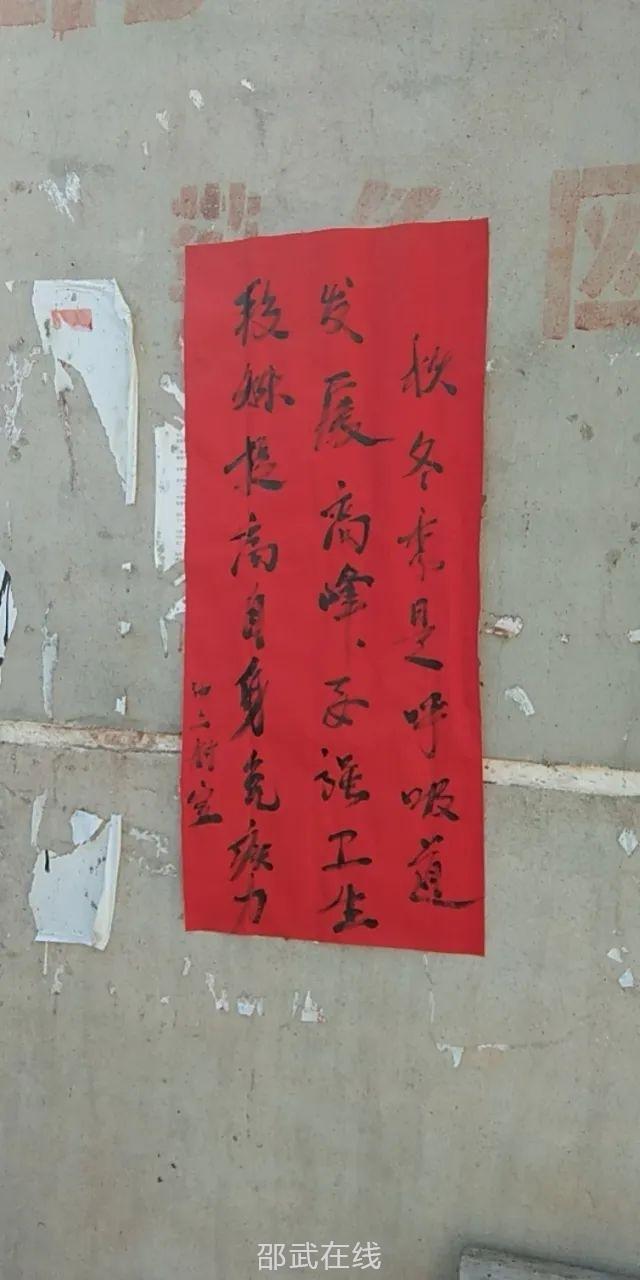 秋冬季是呼吸道
发展高峰、要强卫生
锻炼提高自身免疫力
邵武在线